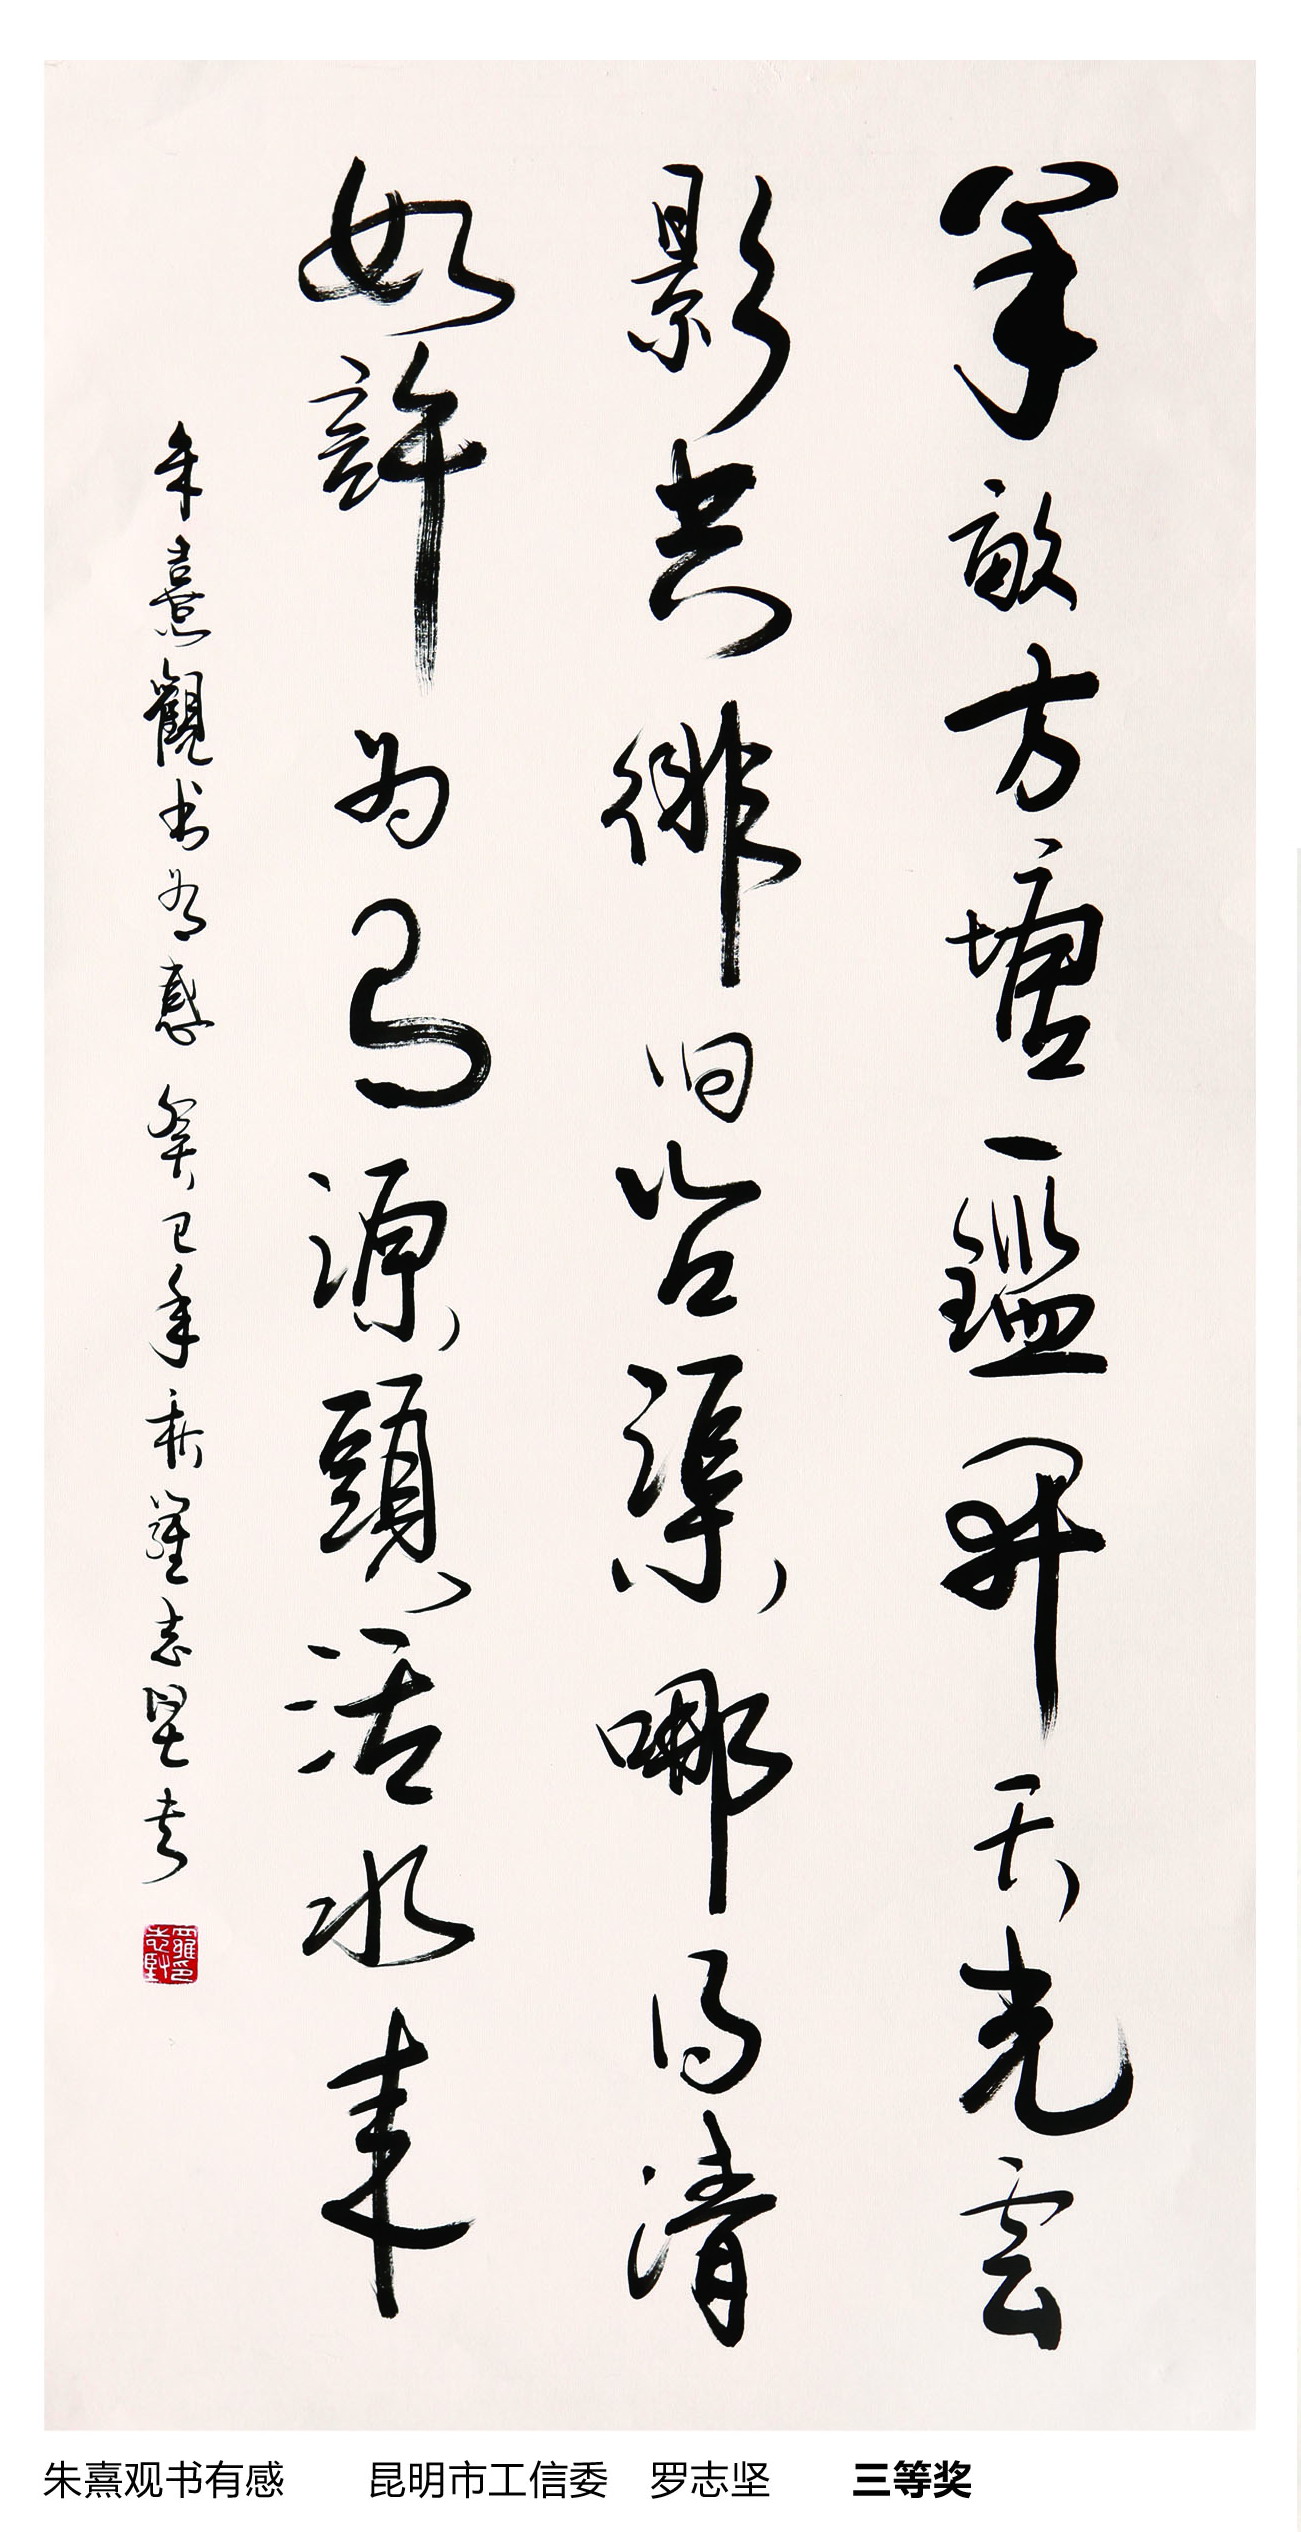 半畝方塘一鑑開天光雲
影共徘徊問渠哪得清
如許為有源頭活水来
朱熹觀书有感 癸巳年 羅志堅书
羅志堅印
朱熹观书有感 昆明市工信委 罗志坚 三等奖